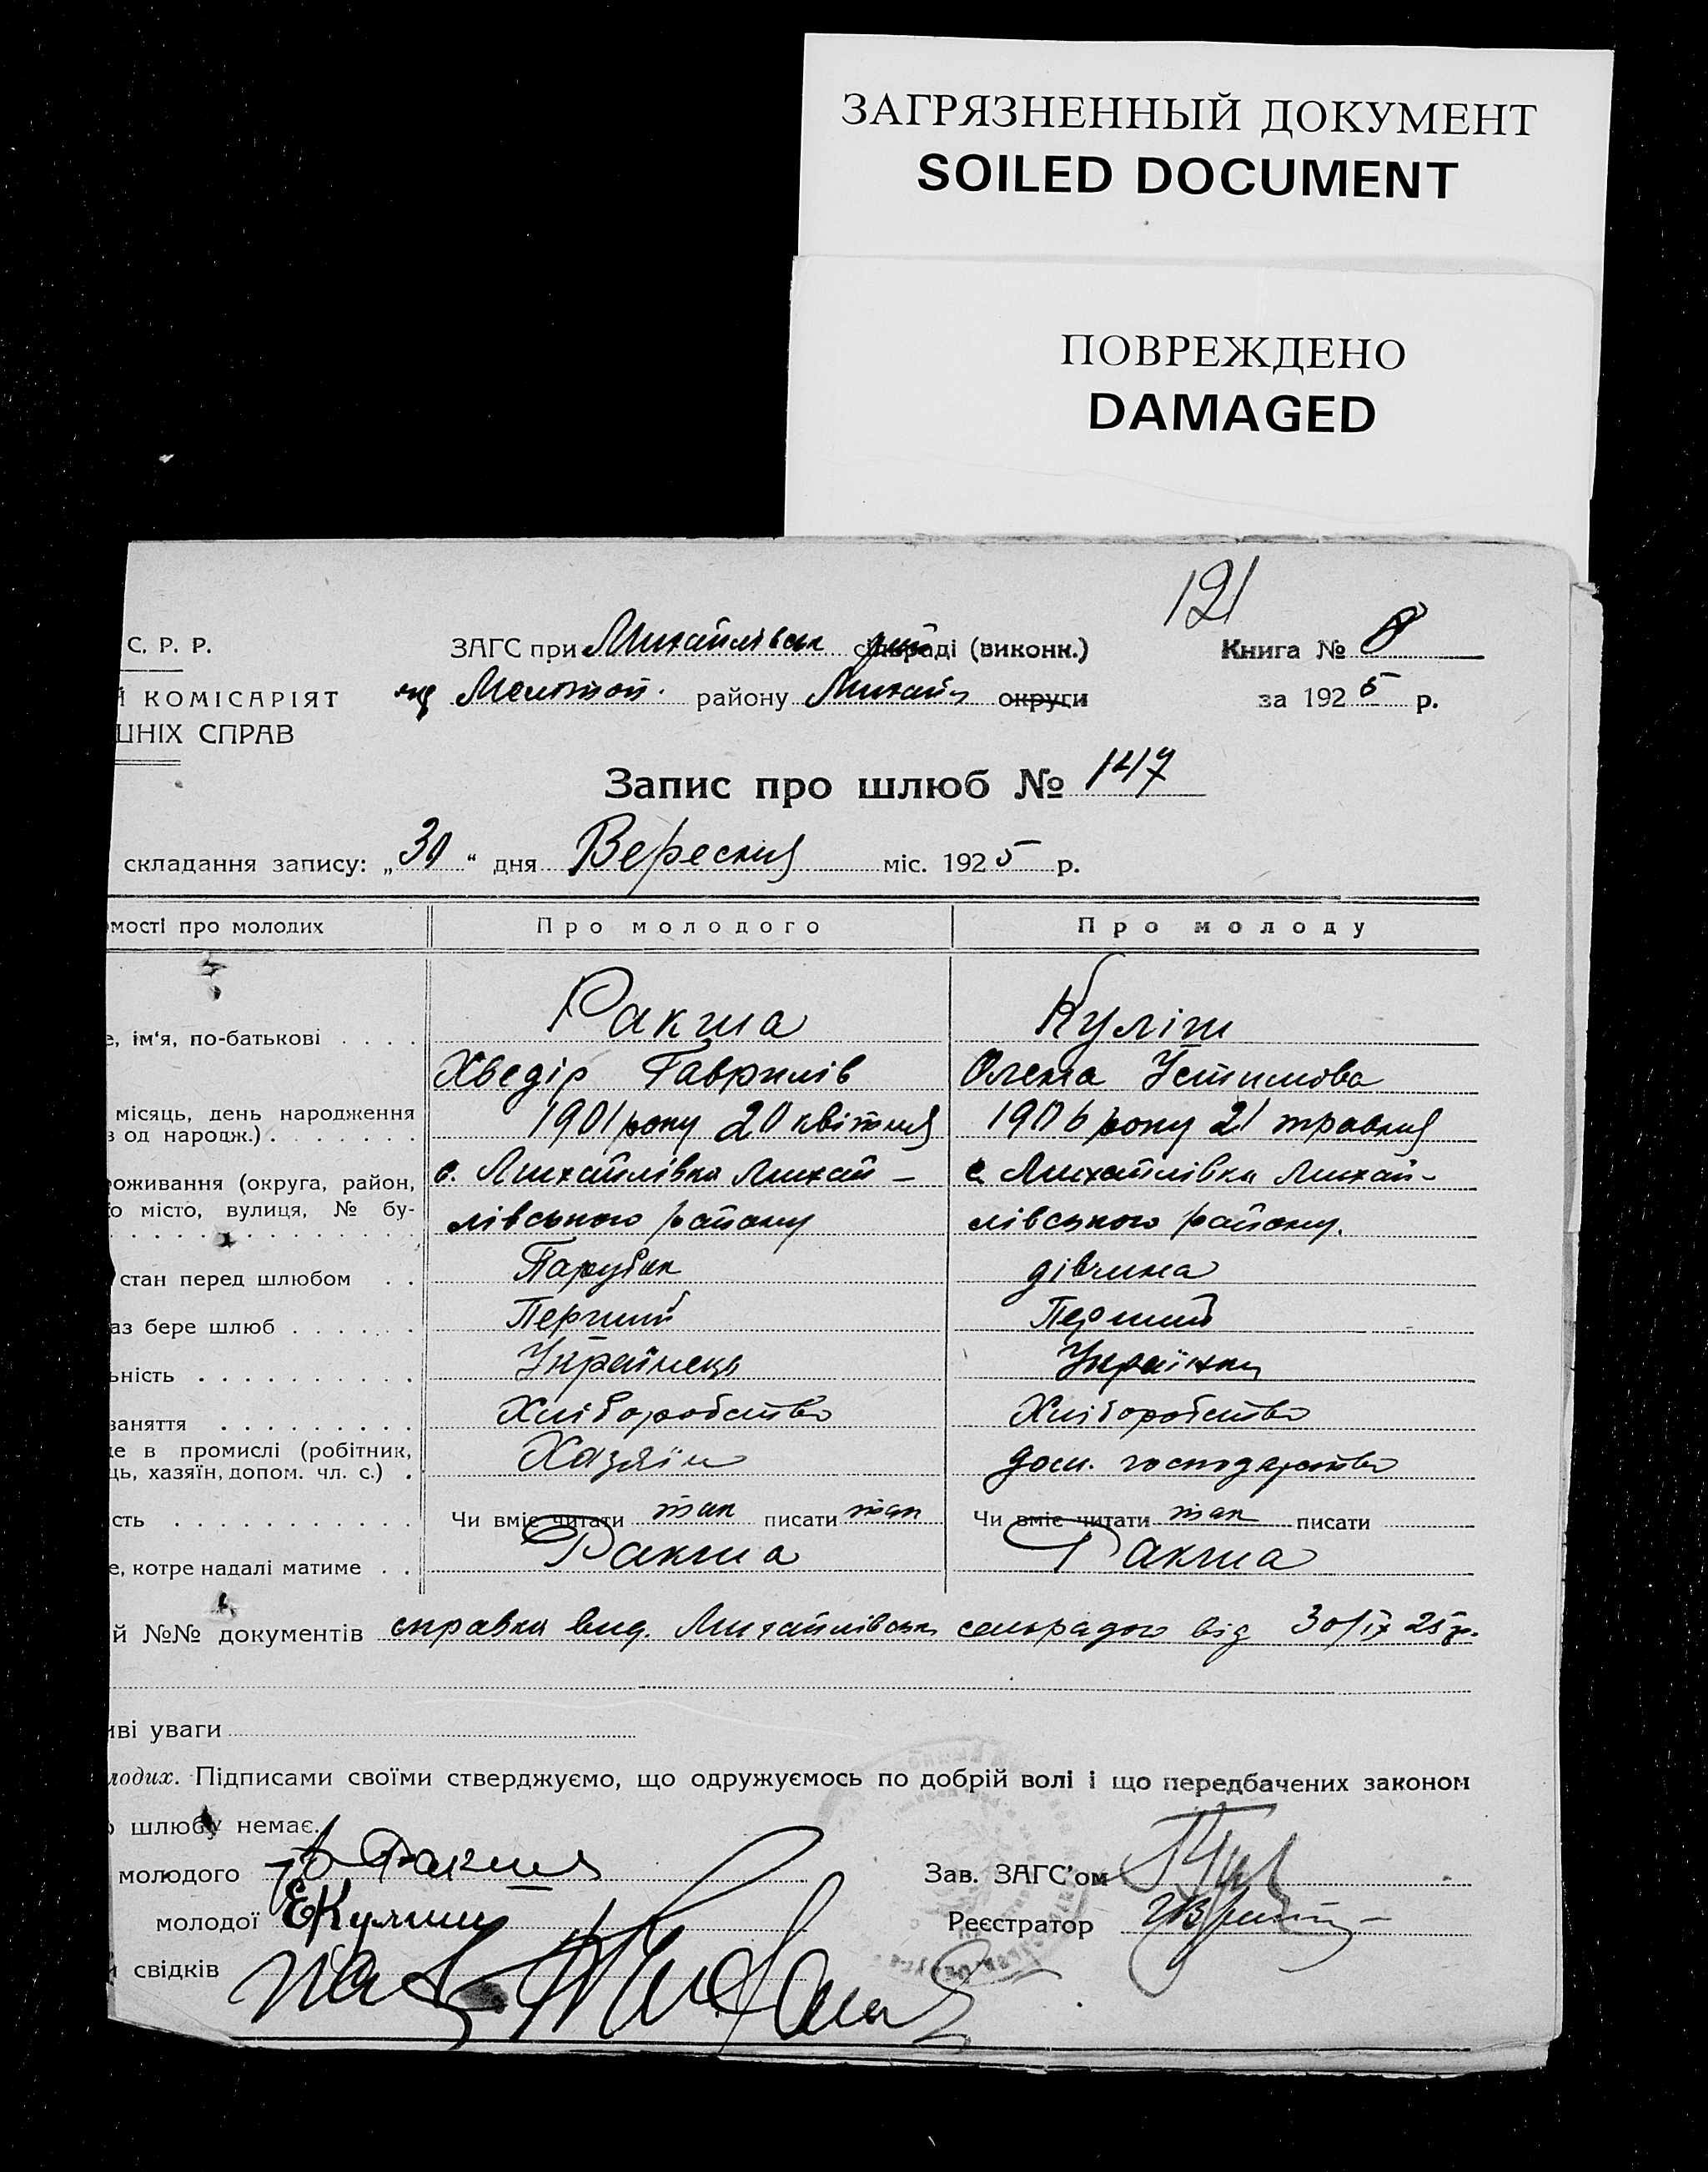 ЗАГРЯЗНЕННЫЙ ДОКУМЕНТ
SOILED DOCUMENT
ПОВРЕЖДЕНО
DAMAGED
121
С. Р. Р.
ЗАГС при Михайлівськ раді (виконк.)
Книга № 8
КОМІСАРІЯТ
Мелітоп. району Михайл округи
за 1925 р.
ШНІХ СПРАВ
Запис про шлюб № 147
складання запису: „30“ дня Вересня міс. 1925 р.
мості про молодих
Про молодого
Про молоду
е, ім'я, по-батькові . . . .
Ракша
Куліш
Хведір Гаврилів
Олена Устимова
місяць, день народження
в од народж.) . . . . . . .
1901 року 20 квітня
1906 року 21 травня
оживання (округа, район,
о місто, вулиця, № бу-
с. Михайлівка Михай-
лівського району
с. Михайлівка Михай-
лівського району.
стан перед шлюбом . .
Парубок
дівчина
аз бере шлюб . . . . . .
Перший
Перший
ьність . . . . . . . . . .
Українець
Українка
заняття . . . . . . . . .
Хліборобство
Хліборобство
це в промислі (робітник,
ць, хазяїн, допом. чл. с.) .
Хазяїн
дом. господарство
сть . . . . . . . . . . .
Чи вміє читати так писати так
Чи вміє читати так писати
е, котре надалі матиме . .
Ракша
Ракша
й №№ документів справка вид. Михайлівськ сельрадою від 30/ІХ 25 р.
иві уваги
лодих. Підписами своїми стверджуємо, що одружуємось по добрій волі і що передбачених законом
о шлюбу немає.
молодого Ракша
Зав. ЗАГС'ом
молодої ЕКулиш
Реєстратор
и свідків